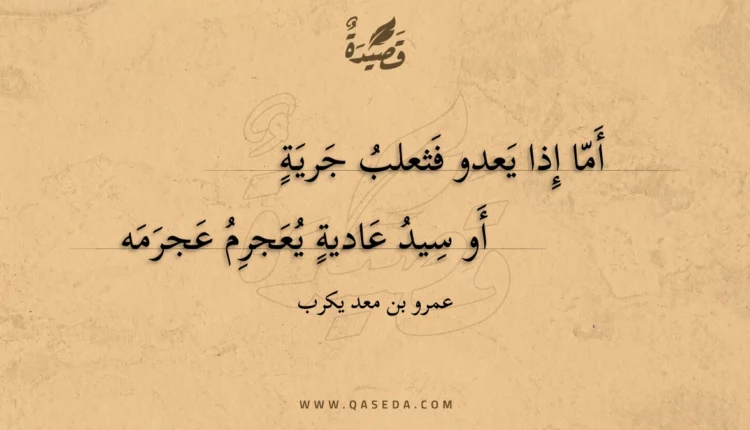 قَصِيدَةٌ
أَمّا إِذا يَعدو فَثعلبُ جَريَةٍ
أَو سِيدُ عَاديةٍ يُعَجرِمُ عَجرَمَه
عمرو بن معد يكرب
WWW.QASEDA.COM